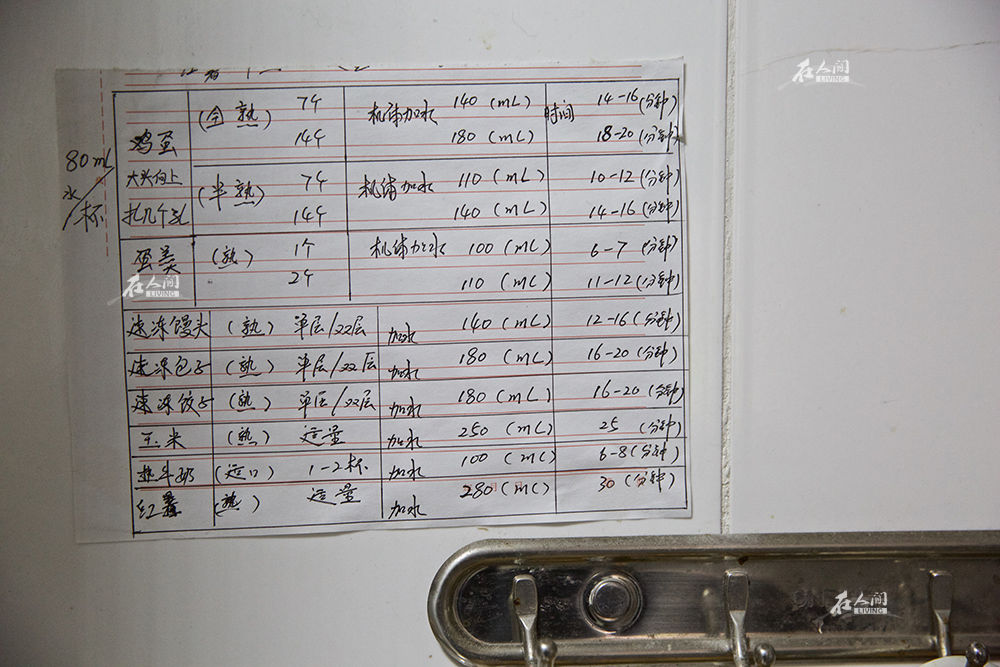 在人间
LIVING
(全熟) 7个 机体加水 140 (mL) 时间 14-16(分钟)
鸡蛋 14个 180 (mL) 18-20(分钟)
80mL
水/杯
大头向上 (半熟) 7个 机体加水 110 (mL) 10-12(分钟)
扎几个孔 14个 140 (mL) 14-16(分钟)
蛋羹 (熟) 1个 机体加水 100 (mL) 6-7(分钟)
2个 110 (mL) 11-12(分钟)
在人间
LIVING
速冻馒头 (熟) 单层/双层 加水 140 (mL) 12-16(分钟)
速冻包子 (熟) 单层/双层 加水 180 (mL) 16-20(分钟)
速冻饺子 (熟) 单层/双层 加水 180 (mL) 16-20(分钟)
玉米 (熟) 适量 加水 250 (mL) 25 (分钟)
热牛奶 (适口) 1-2杯 加水 100 (mL) 6-8(分钟)
红薯 (熟) 适量 加水 280 (mL) 30 (分钟)
在人间
LIVING